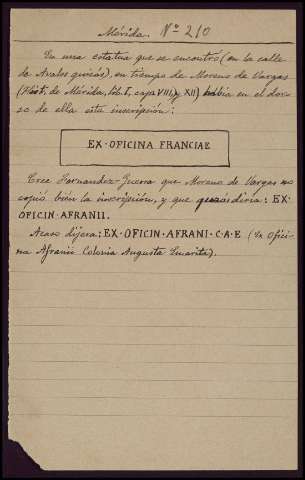 Mérida. Nº 210
En una estatua que se encontró (en la calle
de Avalos quizás), en tiempo de Moreno de Vargas
(Hist. de Mérida, lib. I, caps VIII y XII) había en el dor-
so de ella esta inscripcion:
EX·OFICINA FRANCIAE
Cree Fernandez-Guerra que Moreno de Vargas no
copió bien la inscripcion, y que quizás diria: EX·
OFICIN·AFRANII.
Acaso dijera: EX·OFICIN·AFRANI·C·A·E (Ex Ofici-
na Afranii Colonia Augusta Emerita).